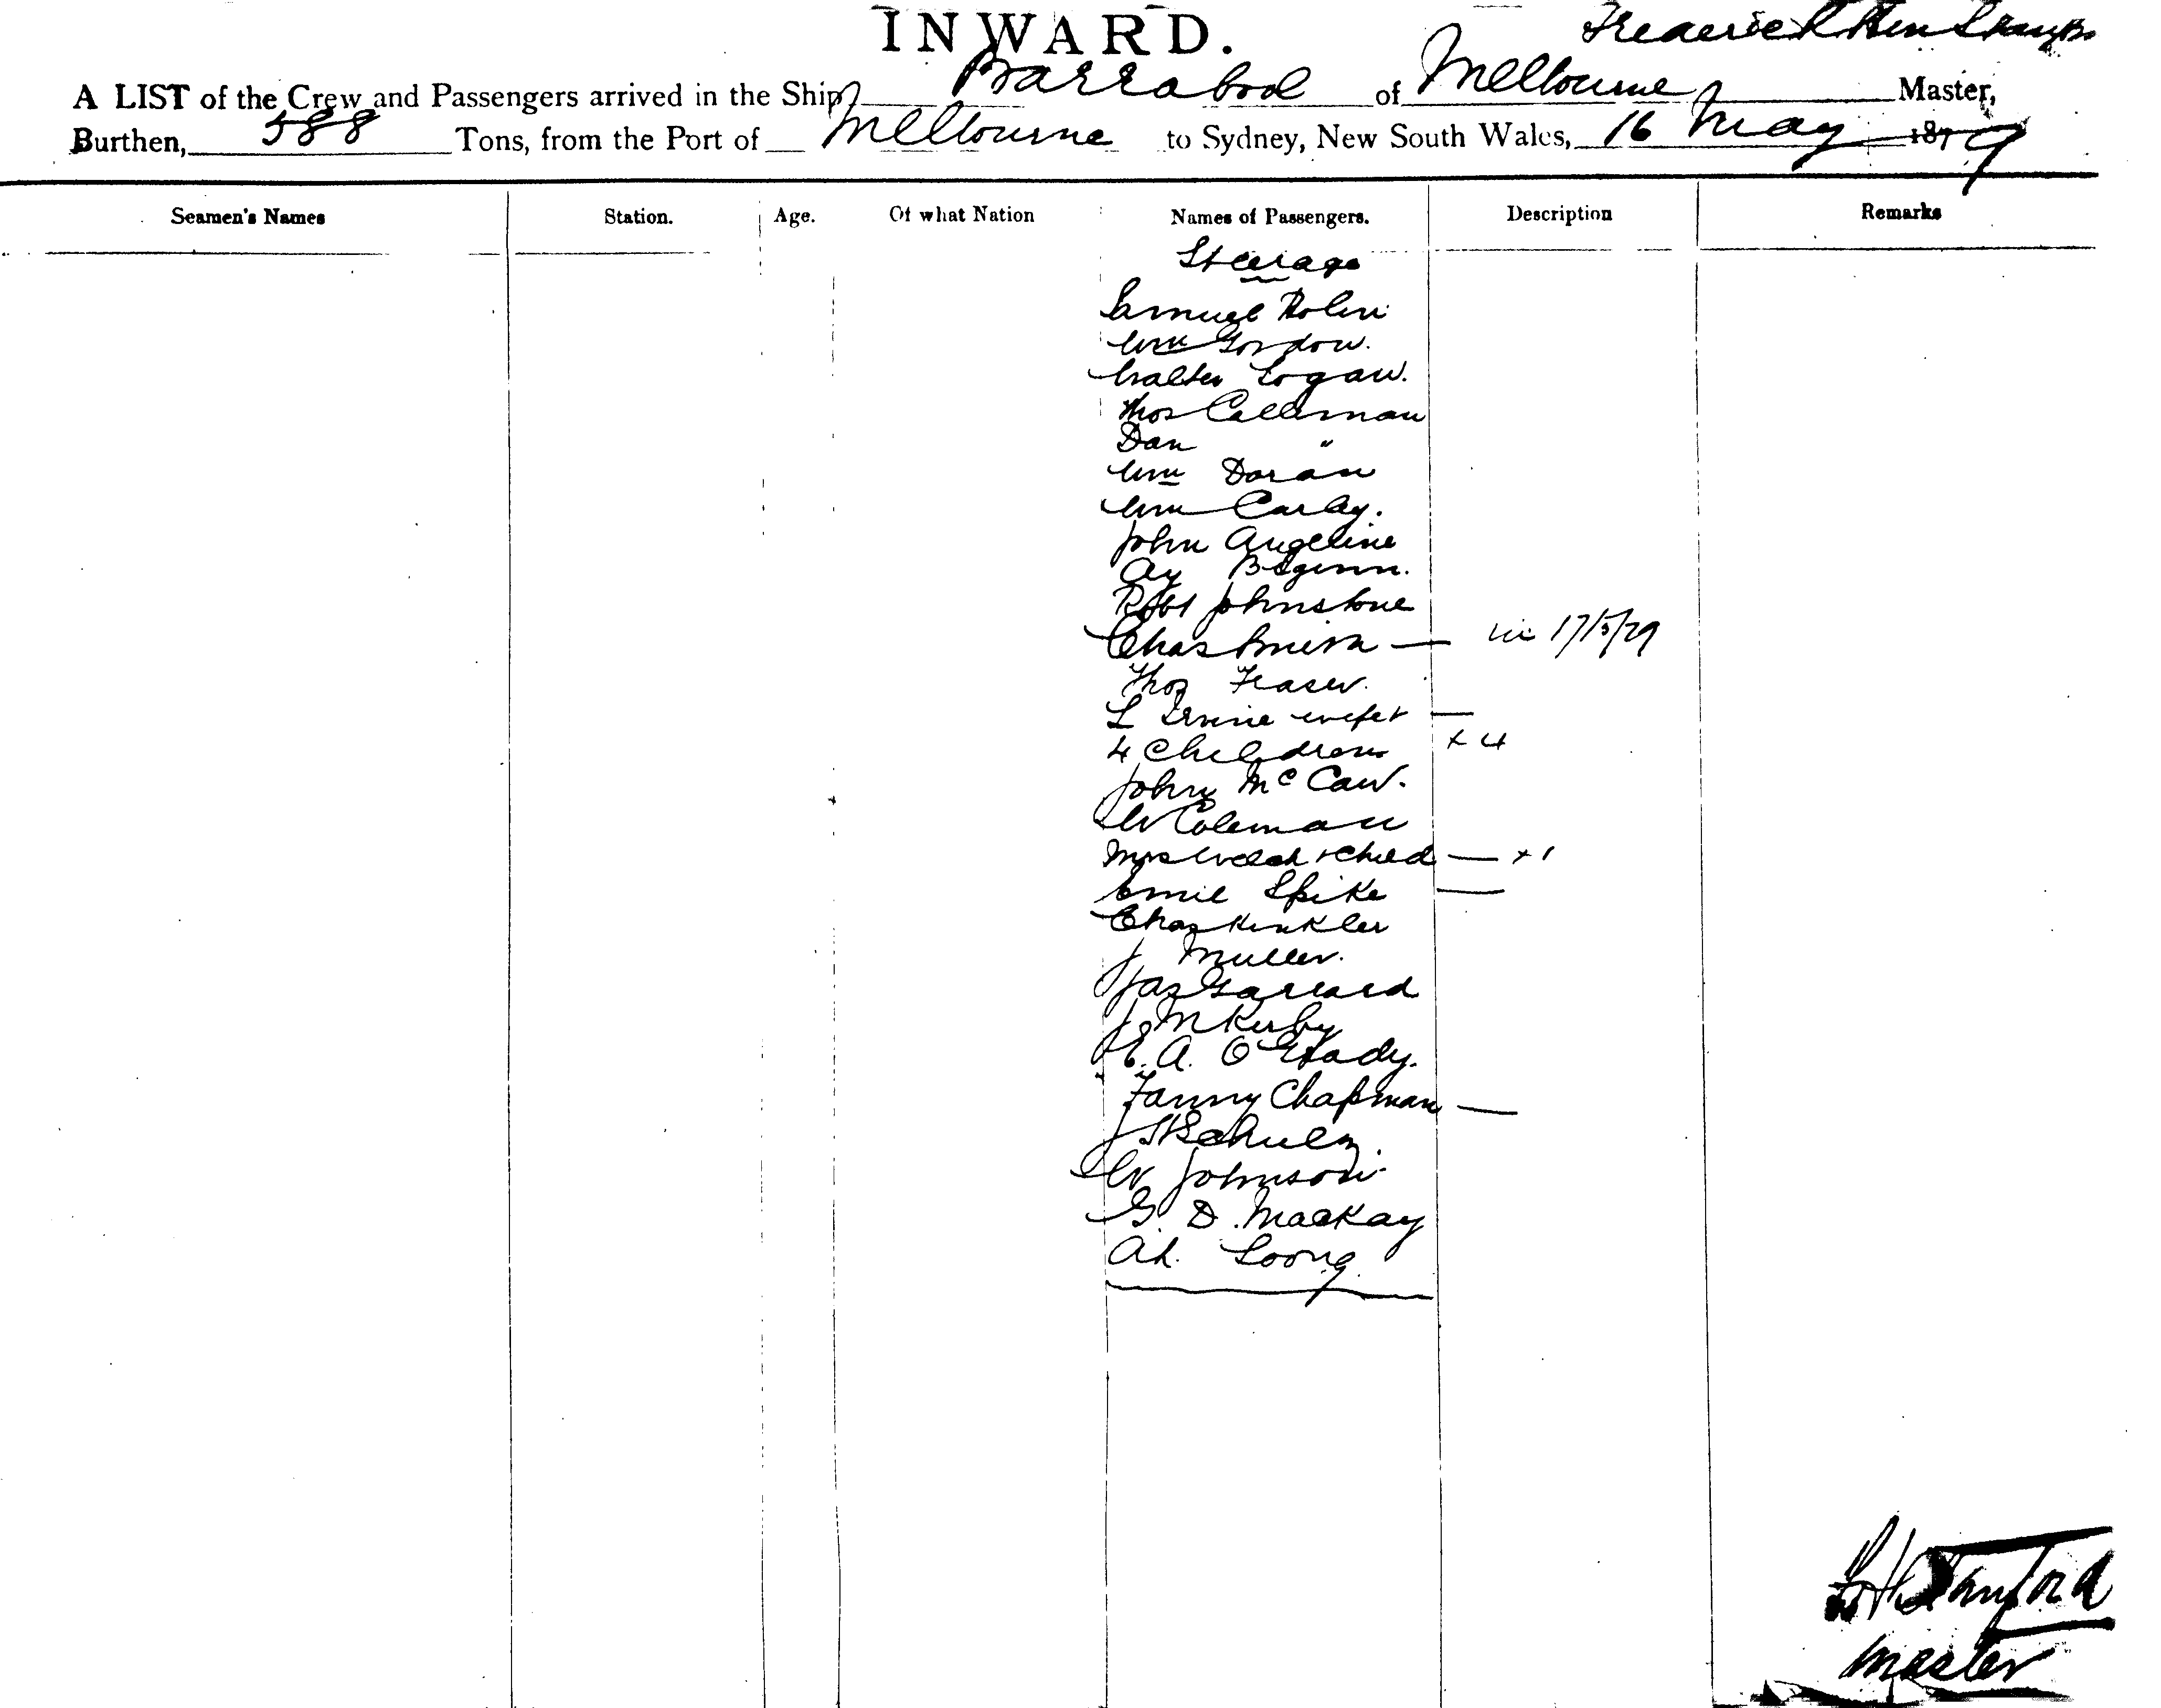 INWARD.
Frederick
A LIST of the Crew and Passengers arrived in the Ship Barrabool of Melbourne Master,
Burthen, 588 Tons, from the Port of Melbourne to Sydney, New South Wales, 16 May 1879
Seamen's Names Station. Age. Of what Nation Names of Passengers. Description Remarks
Steerage
Samuel
Wm Gordon.
Walter Logan.
Thos Calleman
Dan "
Wm Doran
Wm Carby.
John Angeline
Ay
Robt Johnstone
Chas Smith — 17/5/79
Thos Fraser.
L Irvine wife + —
4 Children + 4
John McCaw.
W Coleman
Mrs Welch + Child — + 1
Emil Spike —
Chas Kinkler
J Muller.
Jas Garrard
J M Kirby
E. A. O'Grady.
Fanny Chapman —
J H Schulz.
W Johnson
G. D. Mackay
Ah. Loong
Master